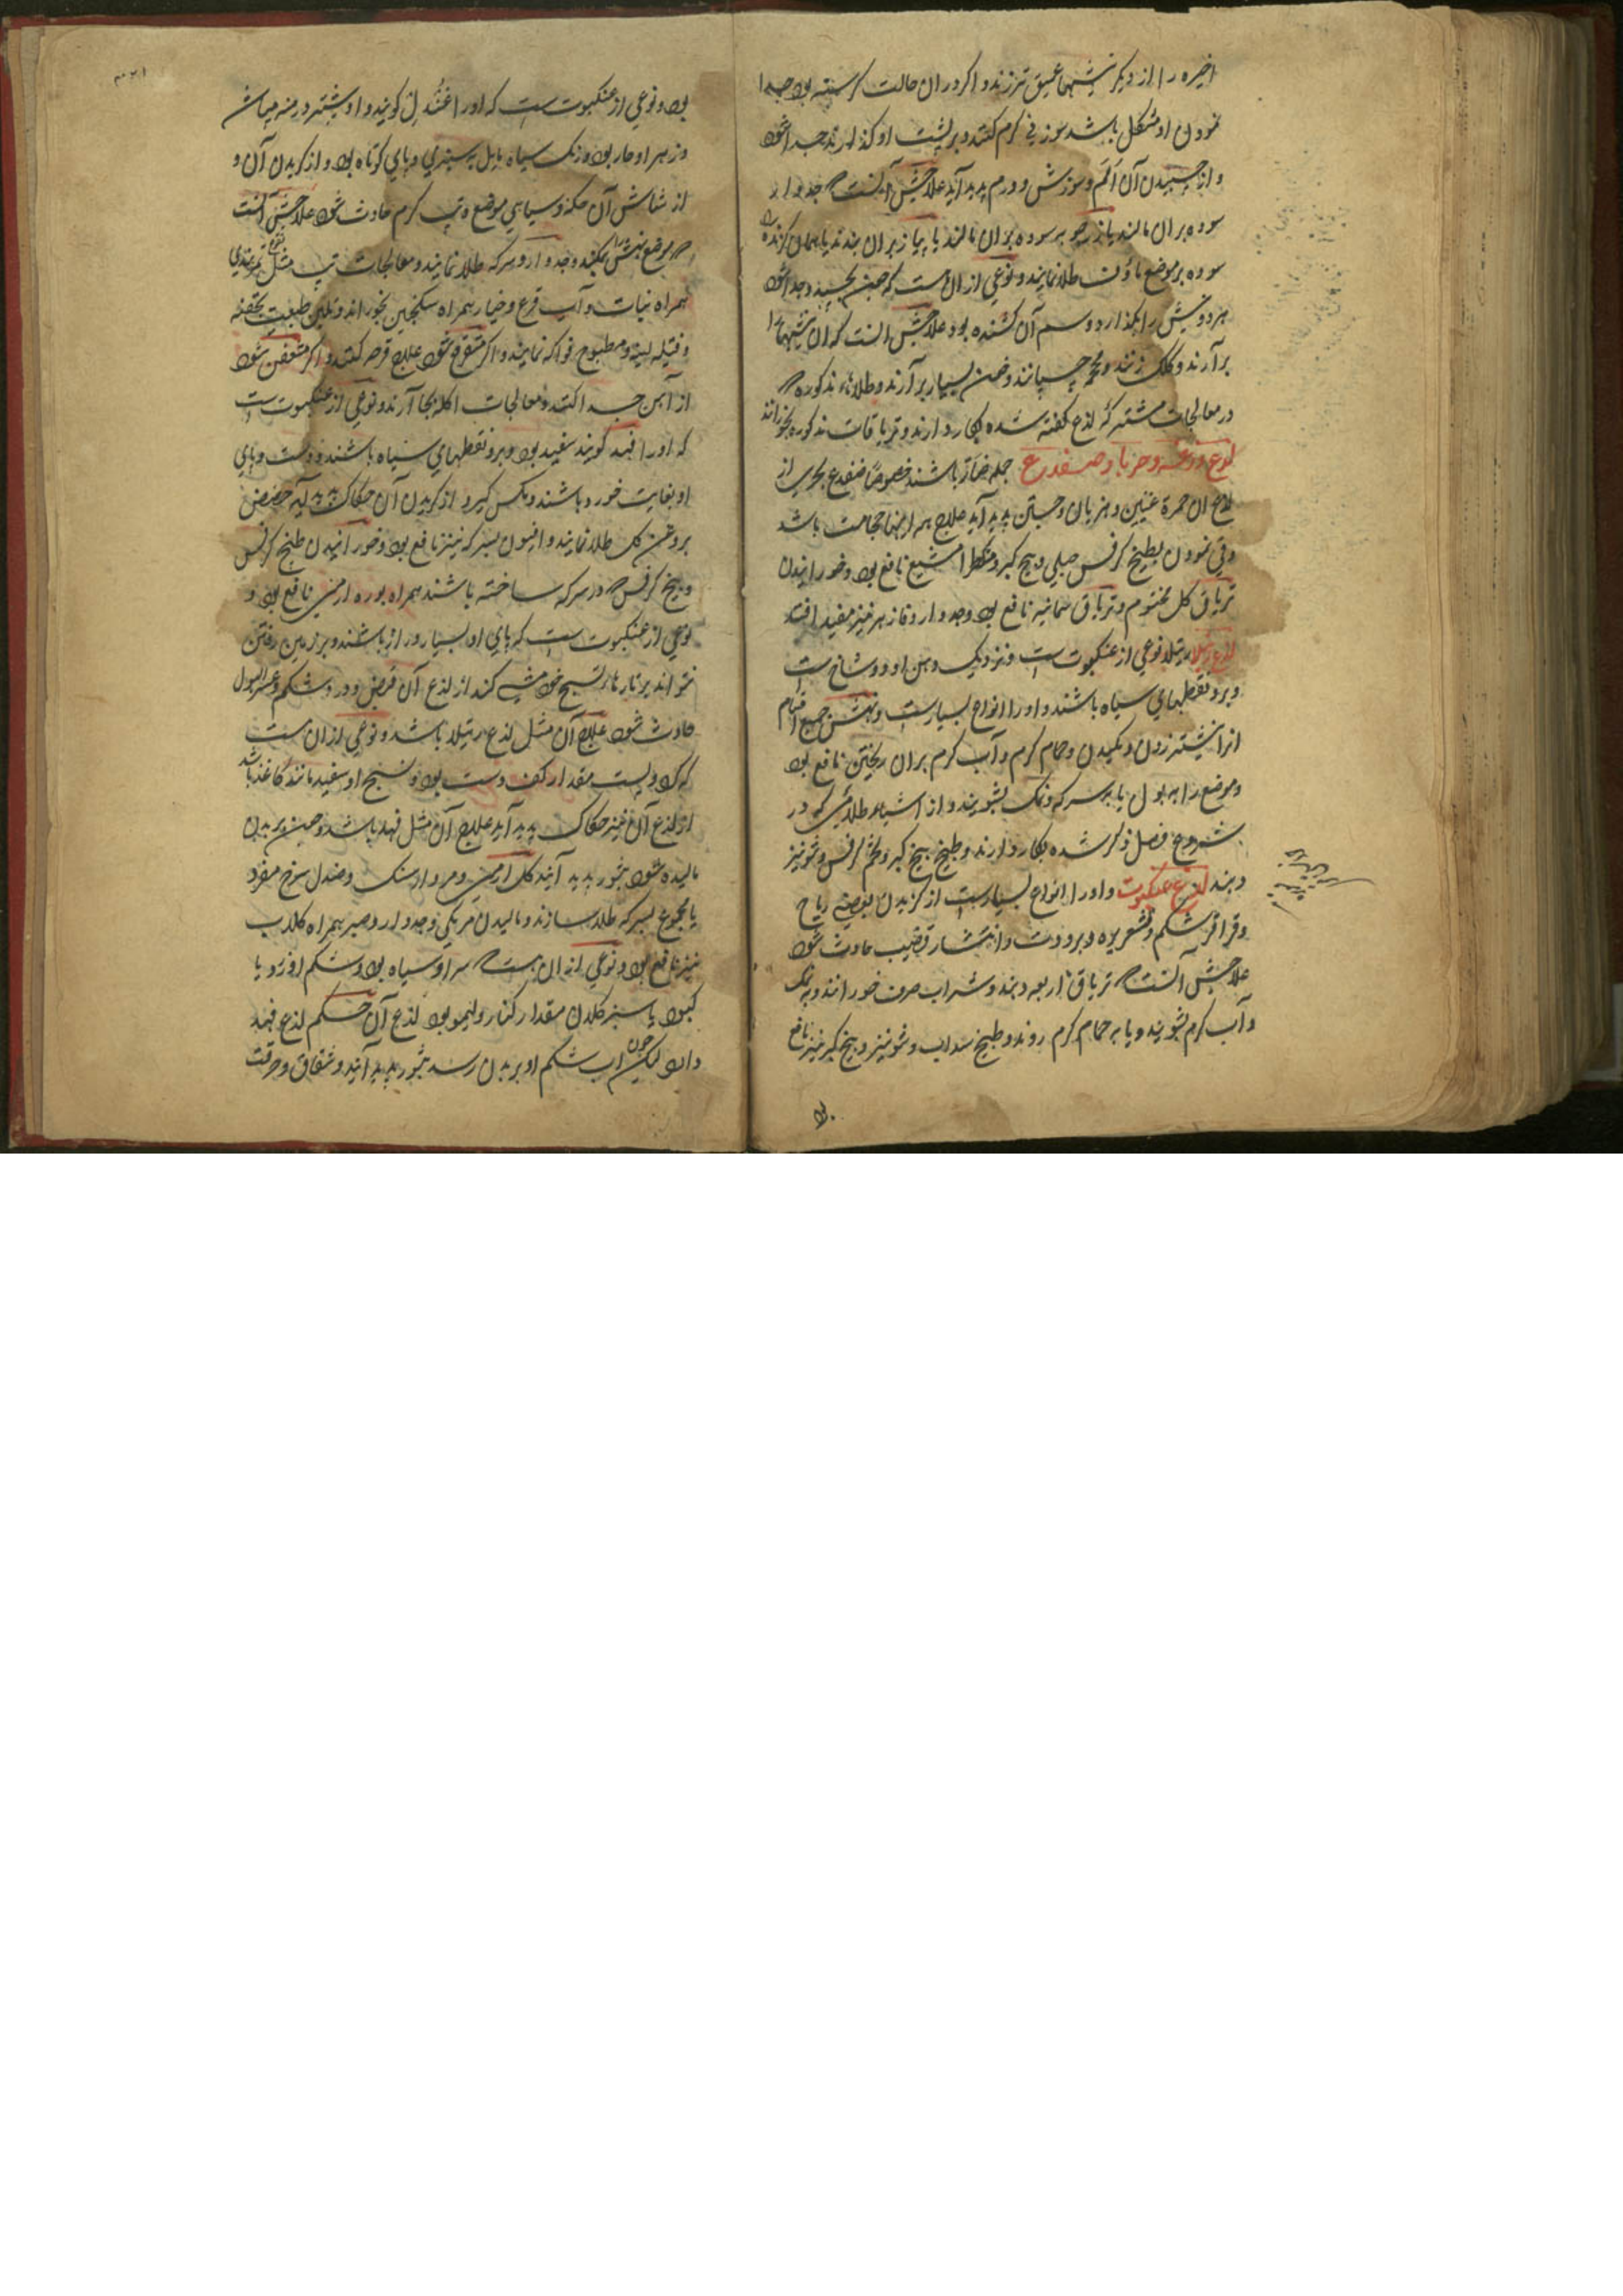 اخیره را از دیگر نیشها عمیق تر زنند و اگر در ان حالت گرسنه بود جدا
نمودن او مشکل باشد سوزنی گرم کنند و بر پشت او گذارند جدا شود
و از چسپیدن آن الم و سوزش و ورم پدید آید علاجش آنست که جدوار
سوده بران مالند یا بران مالند یا پیاز بران بندند یا همان گزنده را
سوده بر موضع طلا نمایند و نوعی از ان است که چون بچسپد و جدا شود
هر دو نیش را بگذارد و سم آن کشنده بود علاجش آنست که ان نیشها را
برآرند و کلک زنند و محجمه چسپانند و خون بسیار برآرند و طلاهاء مذکوره که
در معالجات مشترکه لذع گفته شده بکار دارند و تریاقات مذکوره بخورانند
لذع وزغه و حربا و ضفدع جمله ضار باشند خصوصا ضفدع بحری از
لذع ان حمرة عینین و هذیان و جستن پدید آید علاج همه اینها حجامت باشد
و قی نمودن بطبیخ کرفس جبلی و بیخ کبر و مشکطرامشیع نافع بود و خورانیدن
تریاق گل مختوم و تریاق ثمانیه نافع بود و جدوار و فازهر نیز مفید افتد
لذع رتیلا رتیلا نوعی از عنکبوت است و نزدیک دهن او دو شاخ است
و برو نقطهای سیاه باشند و او را انواع بسیار است و نهش جمیع اقسام
انرا نیشتر زدن و مکیدن و حمام گرم و آب گرم بران ریختن نافع بود
و موضع را به بول یا بسرکه و نمک بشویند و از اشیاء طلائی که در
شروع فصل ذکر شده بکار دارند و طبیخ بیخ کبر و تخم کرفس و شونیز
دهند لذع عنکبوت و او را انواع بسیار است از گزیدن بعضی ریاح
و قراقر شکم و قشعریره و برودت و انتشار قضیب حادث شود
علاجش آنست که تریاق اربعه دهند و شراب صرف خورانند و به نمک
و آب گرم بشویند و یا به حمام گرم روند و طبیخ سداب و شونیز و بیخ کبر نیز نافع
بود
بود و نوعی از عنکبوت است که او را گویند و او بیشتر در میباشد
و زهر او حار بود و رنگ سیاه مایل به سبزی و پای کوتاه بود و از گزیدن آن و
از شاشیدن آن حکه و سیاهی موضع و تپ گرم حادث شود علاجش آنست
که موضع نهش بمکند و جدوار و سرکه طلا نمایند و معالجات تپ مثل نقوع تمرهندی
همراه نبات و آب قرع و خیار همراه سکنجبین بخورانند و تلیین طبیعت بحقنه
و فتیله لینه و مطبوخ فواکه نمایند و اگر متقرح شود علاج قرحه کنند و اگر متعفن شود
از آهن جدا کنند و معالجات اکله بجا آرند و نوعی از عنکبوت است
که او را فهد گویند سفید بود و برو نقطهای سیاه باشند و دست و پای
او بغایت خورد باشند و مگس گیرد از گزیدن آن حکاک پدید آید حضض
بروغن گل طلا نمایند و افیون بسرکه نیز نافع بود و خورانیدن طبیخ کرفس
و بیخ کرفس که در سرکه ساخته باشند همراه بوره ارمنی نافع بود و
نوعی از عنکبوت است که پای او بسیار دراز باشند و بر زمین رفتن
نتواند بر تارهای نسیج خود مشی کند از لذع آن قبض و درد شکم و عسر البول
حادث شود علاج آن مثل لذع رتیلا باشد و نوعی از ان است
که کلان مقدار کف دست بود و نسیج او سفید مانند کاغذ باشد
از لذع آن نیز حکاک پدید آید علاج آن مثل فهد باشد و چون بر بدن
مالیده شود بثور پدید آیند گل ارمنی و مردارسنگ و صندل سرخ مفرد
یا مجموع بسرکه طلا سازند و مالیدن مریکی و جدوار و صبر همراه گلاب
نیز نافع بود و نوعی از ان هست که سر او سیاه بود و شکم او زرد یا
کبود یا سبز کلان مقدار کنار و لیمو بود لذع آن حکم لذع فهد
دارد لیکن چون اب شکم او بر بدن رسد بثور پدید آیند و شقاق و حرقت